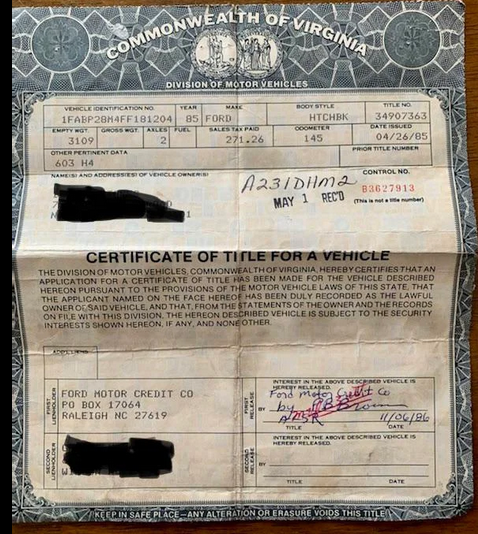 COMMONWEALTH OF VIRGINIA
DIVISION OF MOTOR VEHICLES
VEHICLE IDENTIFICATION NO. YEAR MAKE BODY STYLE TITLE NO.
1FABP28M4FF181204 85 FORD HTCHBK 34907363
EMPTY WGT. GROSS WGT. AXLES FUEL SALES TAX PAID ODOMETER DATE ISSUED
3109 2 271.26 145 04/26/85
OTHER PERTINENT DATA PRIOR TITLE NUMBER
603 H4
NAME(S) AND ADDRESS(ES) OF VEHICLE OWNER(S) CONTROL NO.
A231DHM2 83627913
MAY 1 REC'D (This is not a title number)
7 1
N
CERTIFICATE OF TITLE FOR A VEHICLE
THE DIVISION OF MOTOR VEHICLES, COMMONWEALTH OF VIRGINIA, HEREBY CERTIFIES THAT AN
APPLICATION FOR A CERTIFICATE OF TITLE HAS BEEN MADE FOR THE VEHICLE DESCRIBED
HEREON PURSUANT TO THE PROVISIONS OF THE MOTOR VEHICLE LAWS OF THIS STATE, THAT
THE APPLICANT NAMED ON THE FACE HEREOF HAS BEEN DULY RECORDED AS THE LAWFUL
OWNER OF SAID VEHICLE, AND THAT, FROM THE STATEMENTS OF THE OWNER AND THE RECORDS
ON FILE WITH THIS DIVISION, THE HEREON DESCRIBED VEHICLE IS SUBJECT TO THE SECURITY
INTERESTS SHOWN HEREON, IF ANY, AND NONE OTHER.
ADD'L LIENS
FIRST LIENHOLDER
FORD MOTOR CREDIT CO
PO BOX 17064
RALEIGH NC 27619
FIRST RELEASE
INTEREST IN THE ABOVE DESCRIBED VEHICLE IS
HEREBY RELEASED.
Ford Motor Credit Co
BY by
11/06/86
TITLE DATE
SECOND LIENHOLDER
SECOND RELEASE
INTEREST IN THE ABOVE DESCRIBED VEHICLE IS
HEREBY RELEASED.
BY
TITLE DATE
KEEP IN SAFE PLACE—ANY ALTERATION OR ERASURE VOIDS THIS TITLE